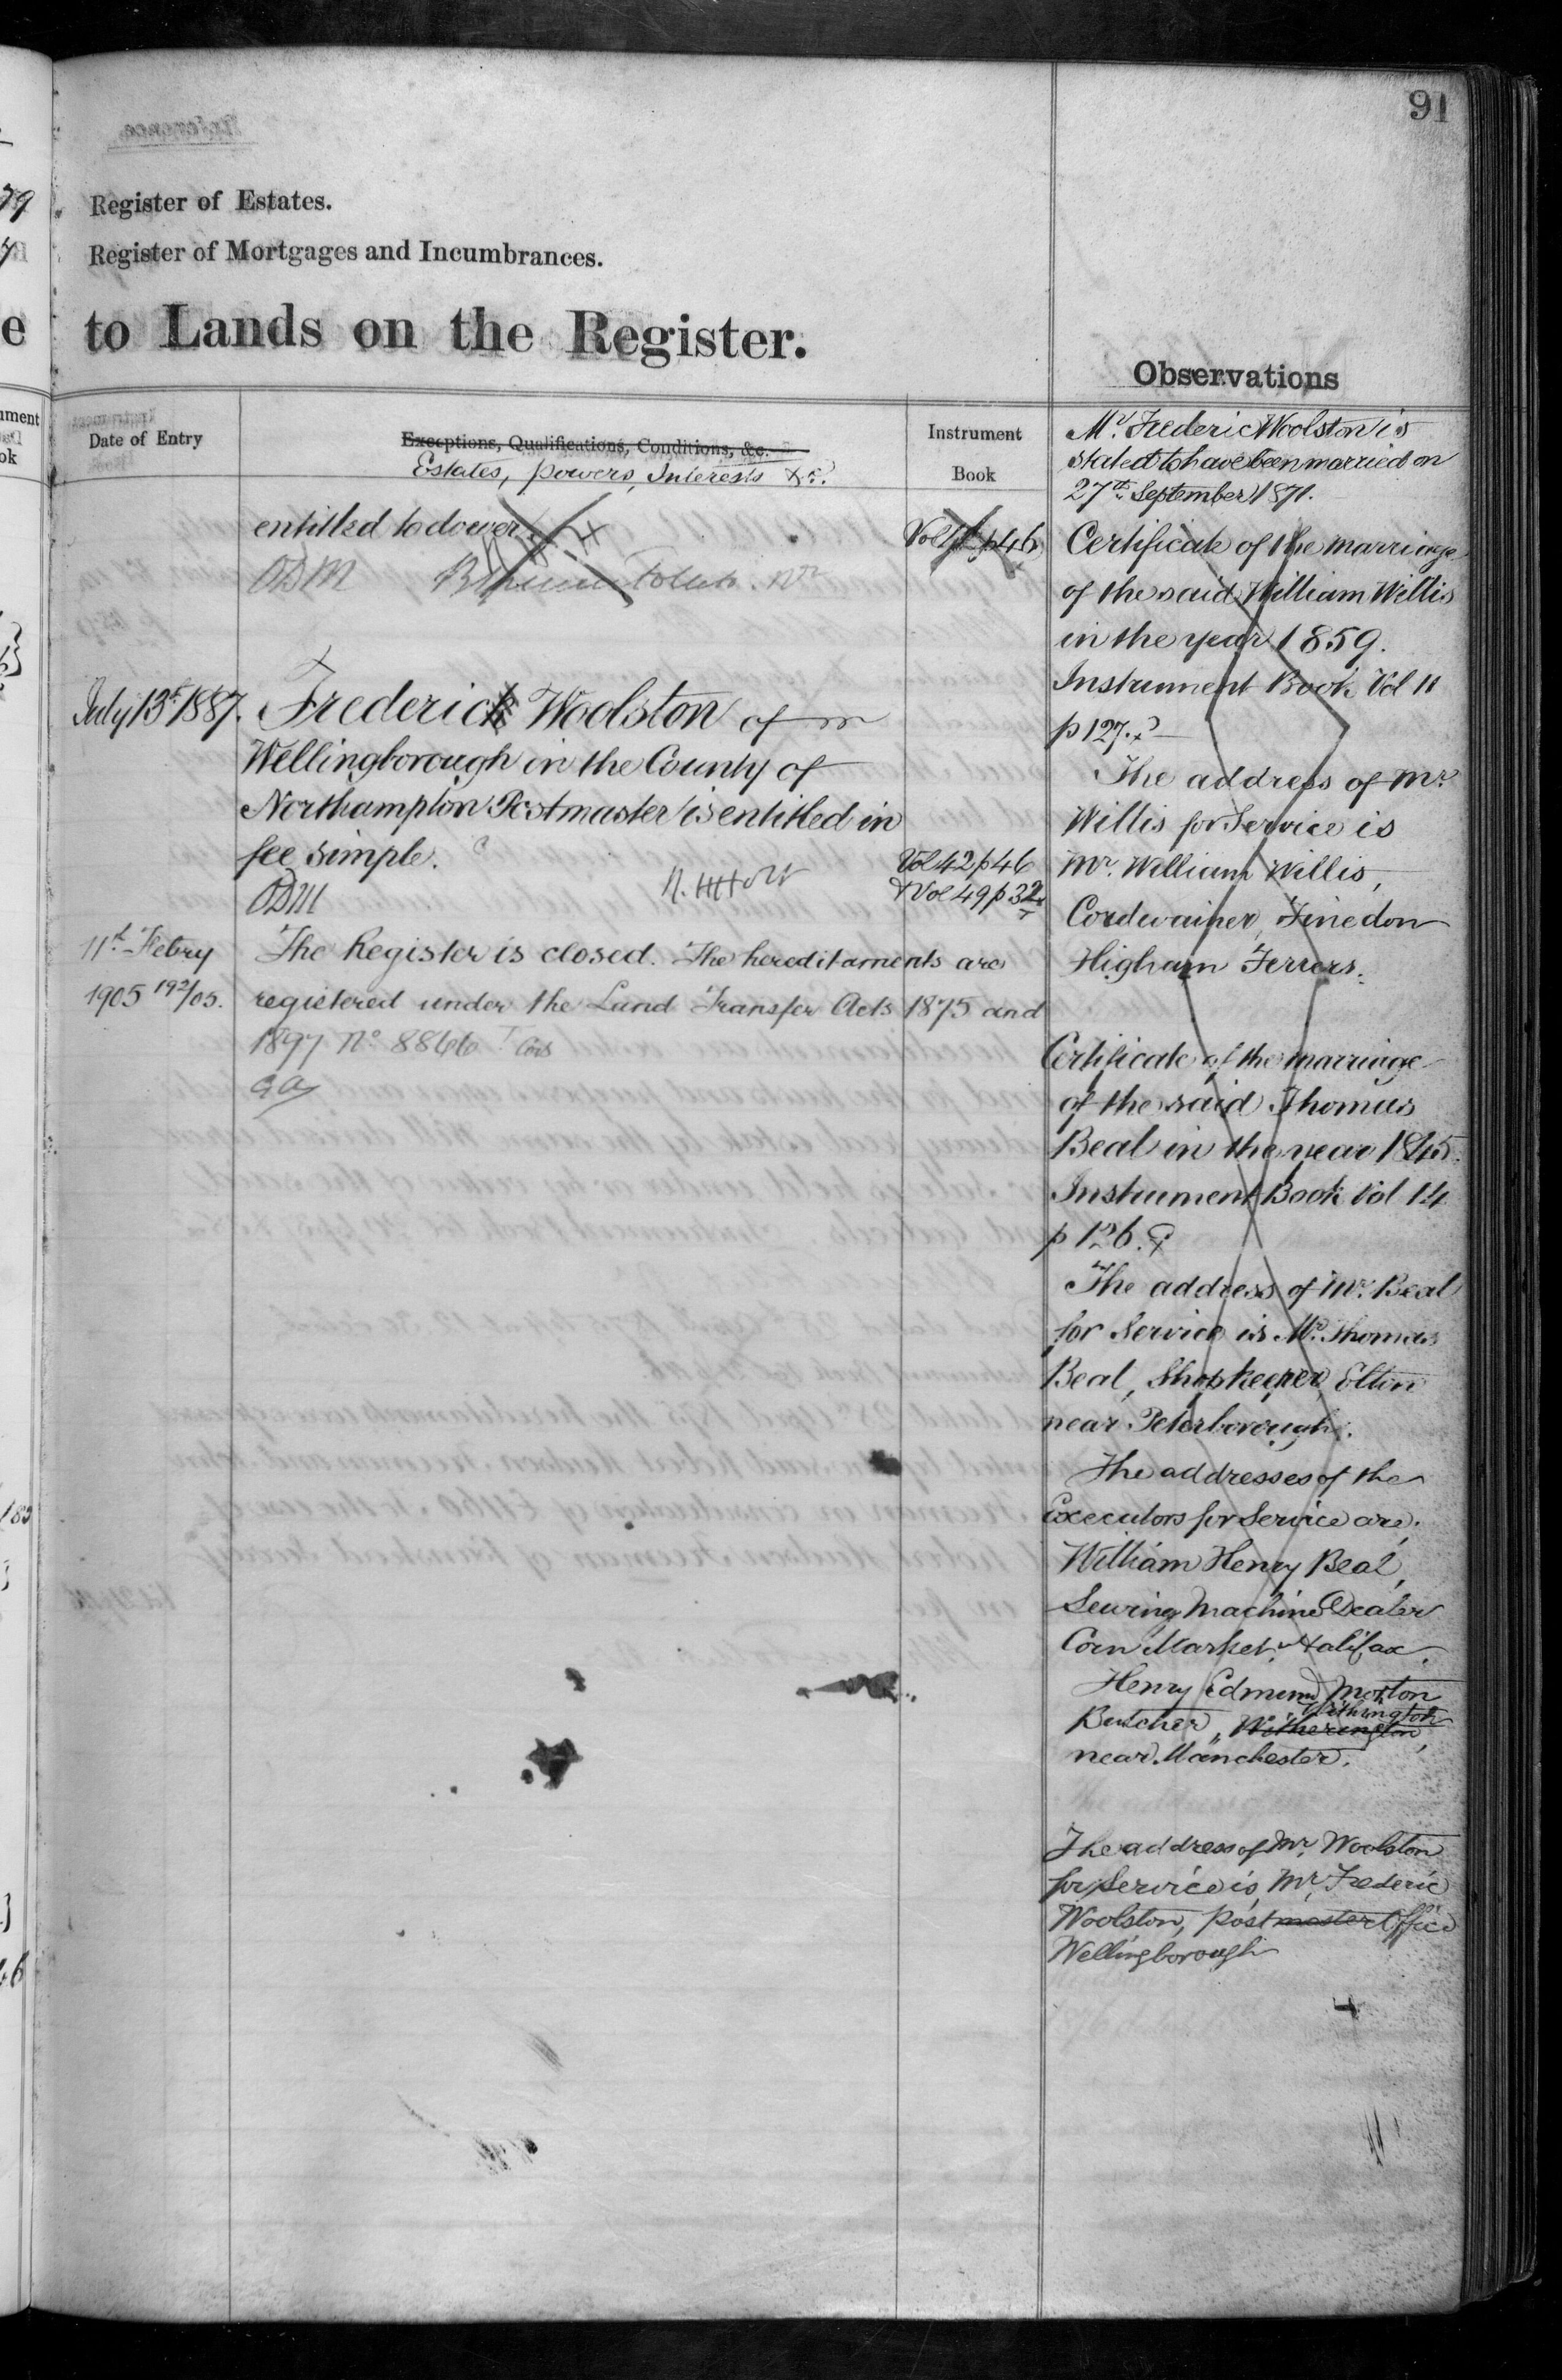 91
Register of Estates.
Register of Mortgages and Incumbrances.
to Lands on the Register.
Observations
Date of Entry
Exceptions, Qualifications, Conditions, &c.
Estates, powers, Interests &c.
Instrument
Book
entitled to dower
Vol p46
ODM
July 13th 1887. Frederick Woolston of
Wellingborough in the County of
Northampton Postmaster is entitled in
fee simple.
Vol 42 p46
& Vol 49 p32
ODM
R. H Holt
11th Febry The Register is closed. The hereditaments are
1905 192/05. registered under the Land Transfer Acts 1875 and
1897 No 8846
Mr Frederic Woolston is
stated to have been married on
27th September 1871.
Certificate of the marriage
of the said William Willis
in the year 1859.
Instrument Book Vol 11
p 127.
The address of Mr
Willis for Service is
Mr. William Willis,
Cordwainer, Finedon
Higham Ferrers.
Certificate of the marriage
of the said Thomas
Beal in the year 1845.
Instrument Book Vol 14
p 126.
The address of Mr. Beal
for Service is Mr. Thomas
Beal, Shopkeeper, Elton
near Peterborough.
The addresses of the
Executors for Service are,
William Henry Beal,
Sewing Machine Dealer
Corn Market, Halifax.
Henry Edmund Morton
Withington
Butcher, Witherington,
near Manchester.
The address of Mr. Woolston
for Service is, Mr. Frederic
Woolston, Postmaster Office
Wellingborough